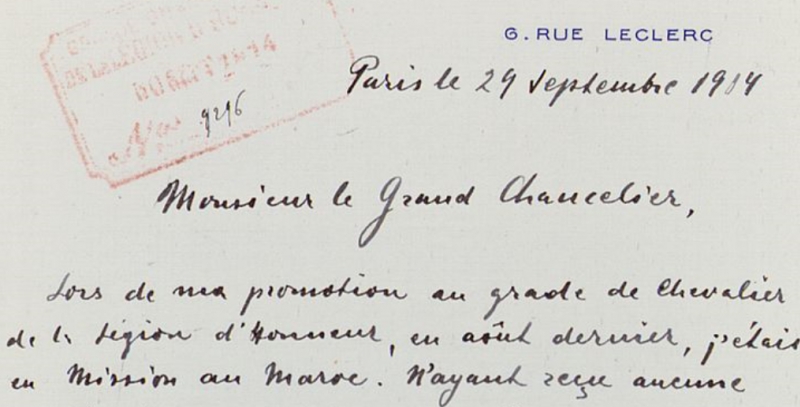 6. RUE LECLERC
Paris le 29 Septembre 1914
30 SEPT 1914
No 9296
Monsieur le Grand Chancelier,
Lors de ma promotion au grade de Chevalier
de la Légion d'Honneur, en août dernier, j'étais
en Mission au Maroc. N'ayant reçu aucune